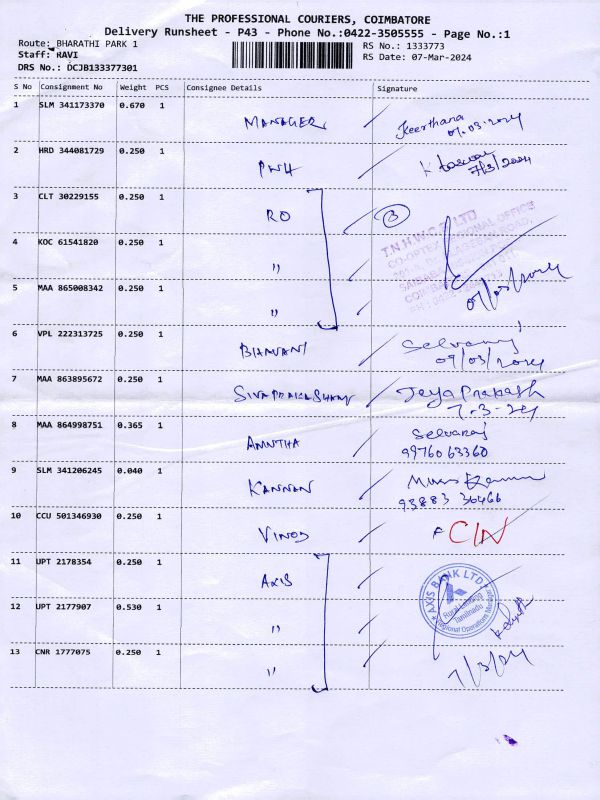 THE PROFESSIONAL COURIERS, COIMBATORE
Delivery Runsheet - P43 - Phone No.:0422-3505555 - Page No.:1
Route: BHARATHI PARK 1
RS No.: 1333773
Staff: RAVI
RS Date: 07-Mar-2024
DRS No.: DCJB133377301
S No Consignment No Weight PCS Consignee Details Signature
1 SLM 341173370 0.670 1 MANAGER Keerthana
07.03.2024
2 HRD 344081729 0.250 1 PWH
7/3/2024
3 CLT 30229155 0.250 1 RO 3
T.N.H.W.C.S LTD
4 KOC 61541820 0.250 1 "
5 MAA 865008342 0.250 1 "
07/03/2024
6 VPL 222313725 0.250 1 BHAVANI Selvaraj
07/03/2024
7 MAA 863895672 0.250 1 SIVAPRAKASHAM JeyaPrakash
7-3-24
8 MAA 864998751 0.365 1 AMUTHA Selvaraj
99760 63360
9 SLM 341206245 0.040 1 KANNAN
93883 36466
10 CCU 501346930 0.250 1 VINOD C/N
11 UPT 2178354 0.250 1 AXIS
AXIS BANK LTD
Rural Lending
Tamilnadu
12 UPT 2177907 0.530 1 "
13 CNR 1777075 0.250 1 "
7/3/24